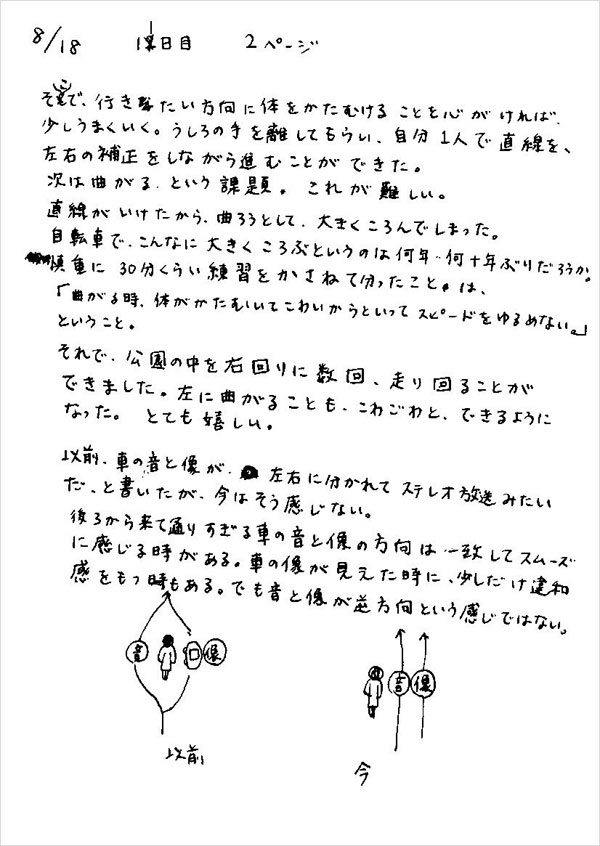 8/18 11日目 2ページ
そこで、行きたい方向に体をかたむけることを心がければ、
少しうまくいく。うしろの手を離してもらい、自分1人で直線を、
左右の補正をしながら進むことができた。
次は曲がる、という課題。これが難しい。
直線がいけたから、曲ろうとして、大きくころんでしまった。
自転車で、こんなに大きくころぶというのは何年・何十年ぶりだろうか。
慎重に30分くらい練習をかさねて分ったことは、
「曲がる時、体がかたむいてこわいからといってスピードをゆるめない。」
ということ。
それで、公園の中を右回りに数回、走り回ることが
できました。左に曲がることも、こわごわと、できるように
なった。とても嬉しい。
以前、車の音と像が、左右に分かれてステレオ放送みたい
だ、と書いたが、今はそう感じない。
後ろから来て通りすぎる車の音と像の方向は一致してスムーズ
に感じる時がある。車の像が見えた時に、少しだけ違和
感をもつ時もある。でも音と像が逆方向という感じではない。
音 像
音 像
以前
今